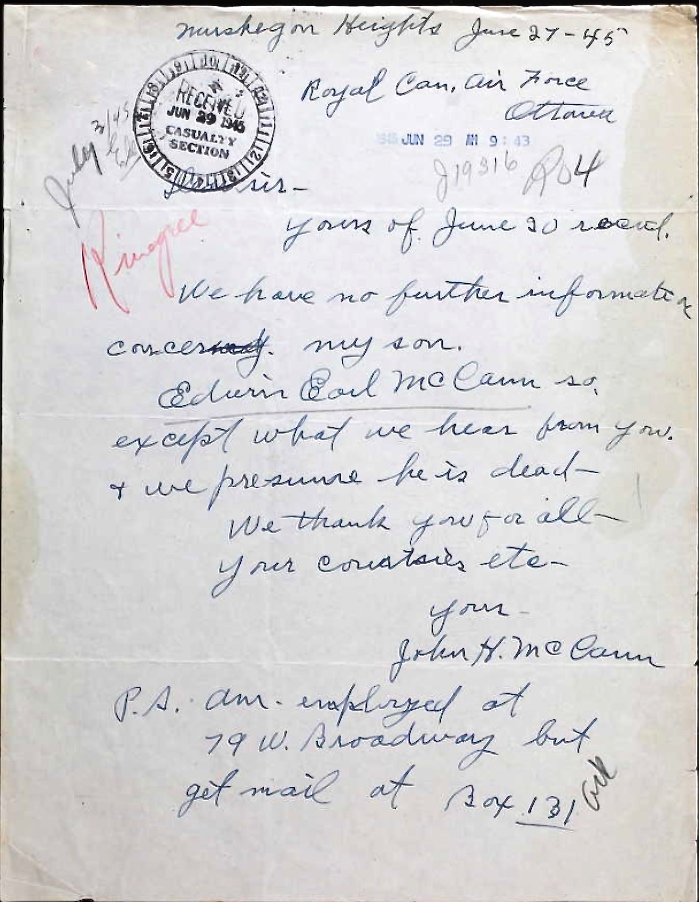 Muskegon Heights June 27-45
Royal Can. Air Force
Ottawa
RECEIVED
JUN 29 1945
CASUALTY
SECTION
1945 JUN 29 AM 9:43
J19316 R04
July 3/45
Dear sir-
Kinegree
yours of June 20 reced.
We have no further information
concerning. my son.
Edwin Earl McCann so,
except what we hear from you.
& we presume he is dead-
We thank you for all-
your courtsies etc-
your-
John H. McCann
P.S. am. employed at
79 W. Broadway but
get mail at Box 131